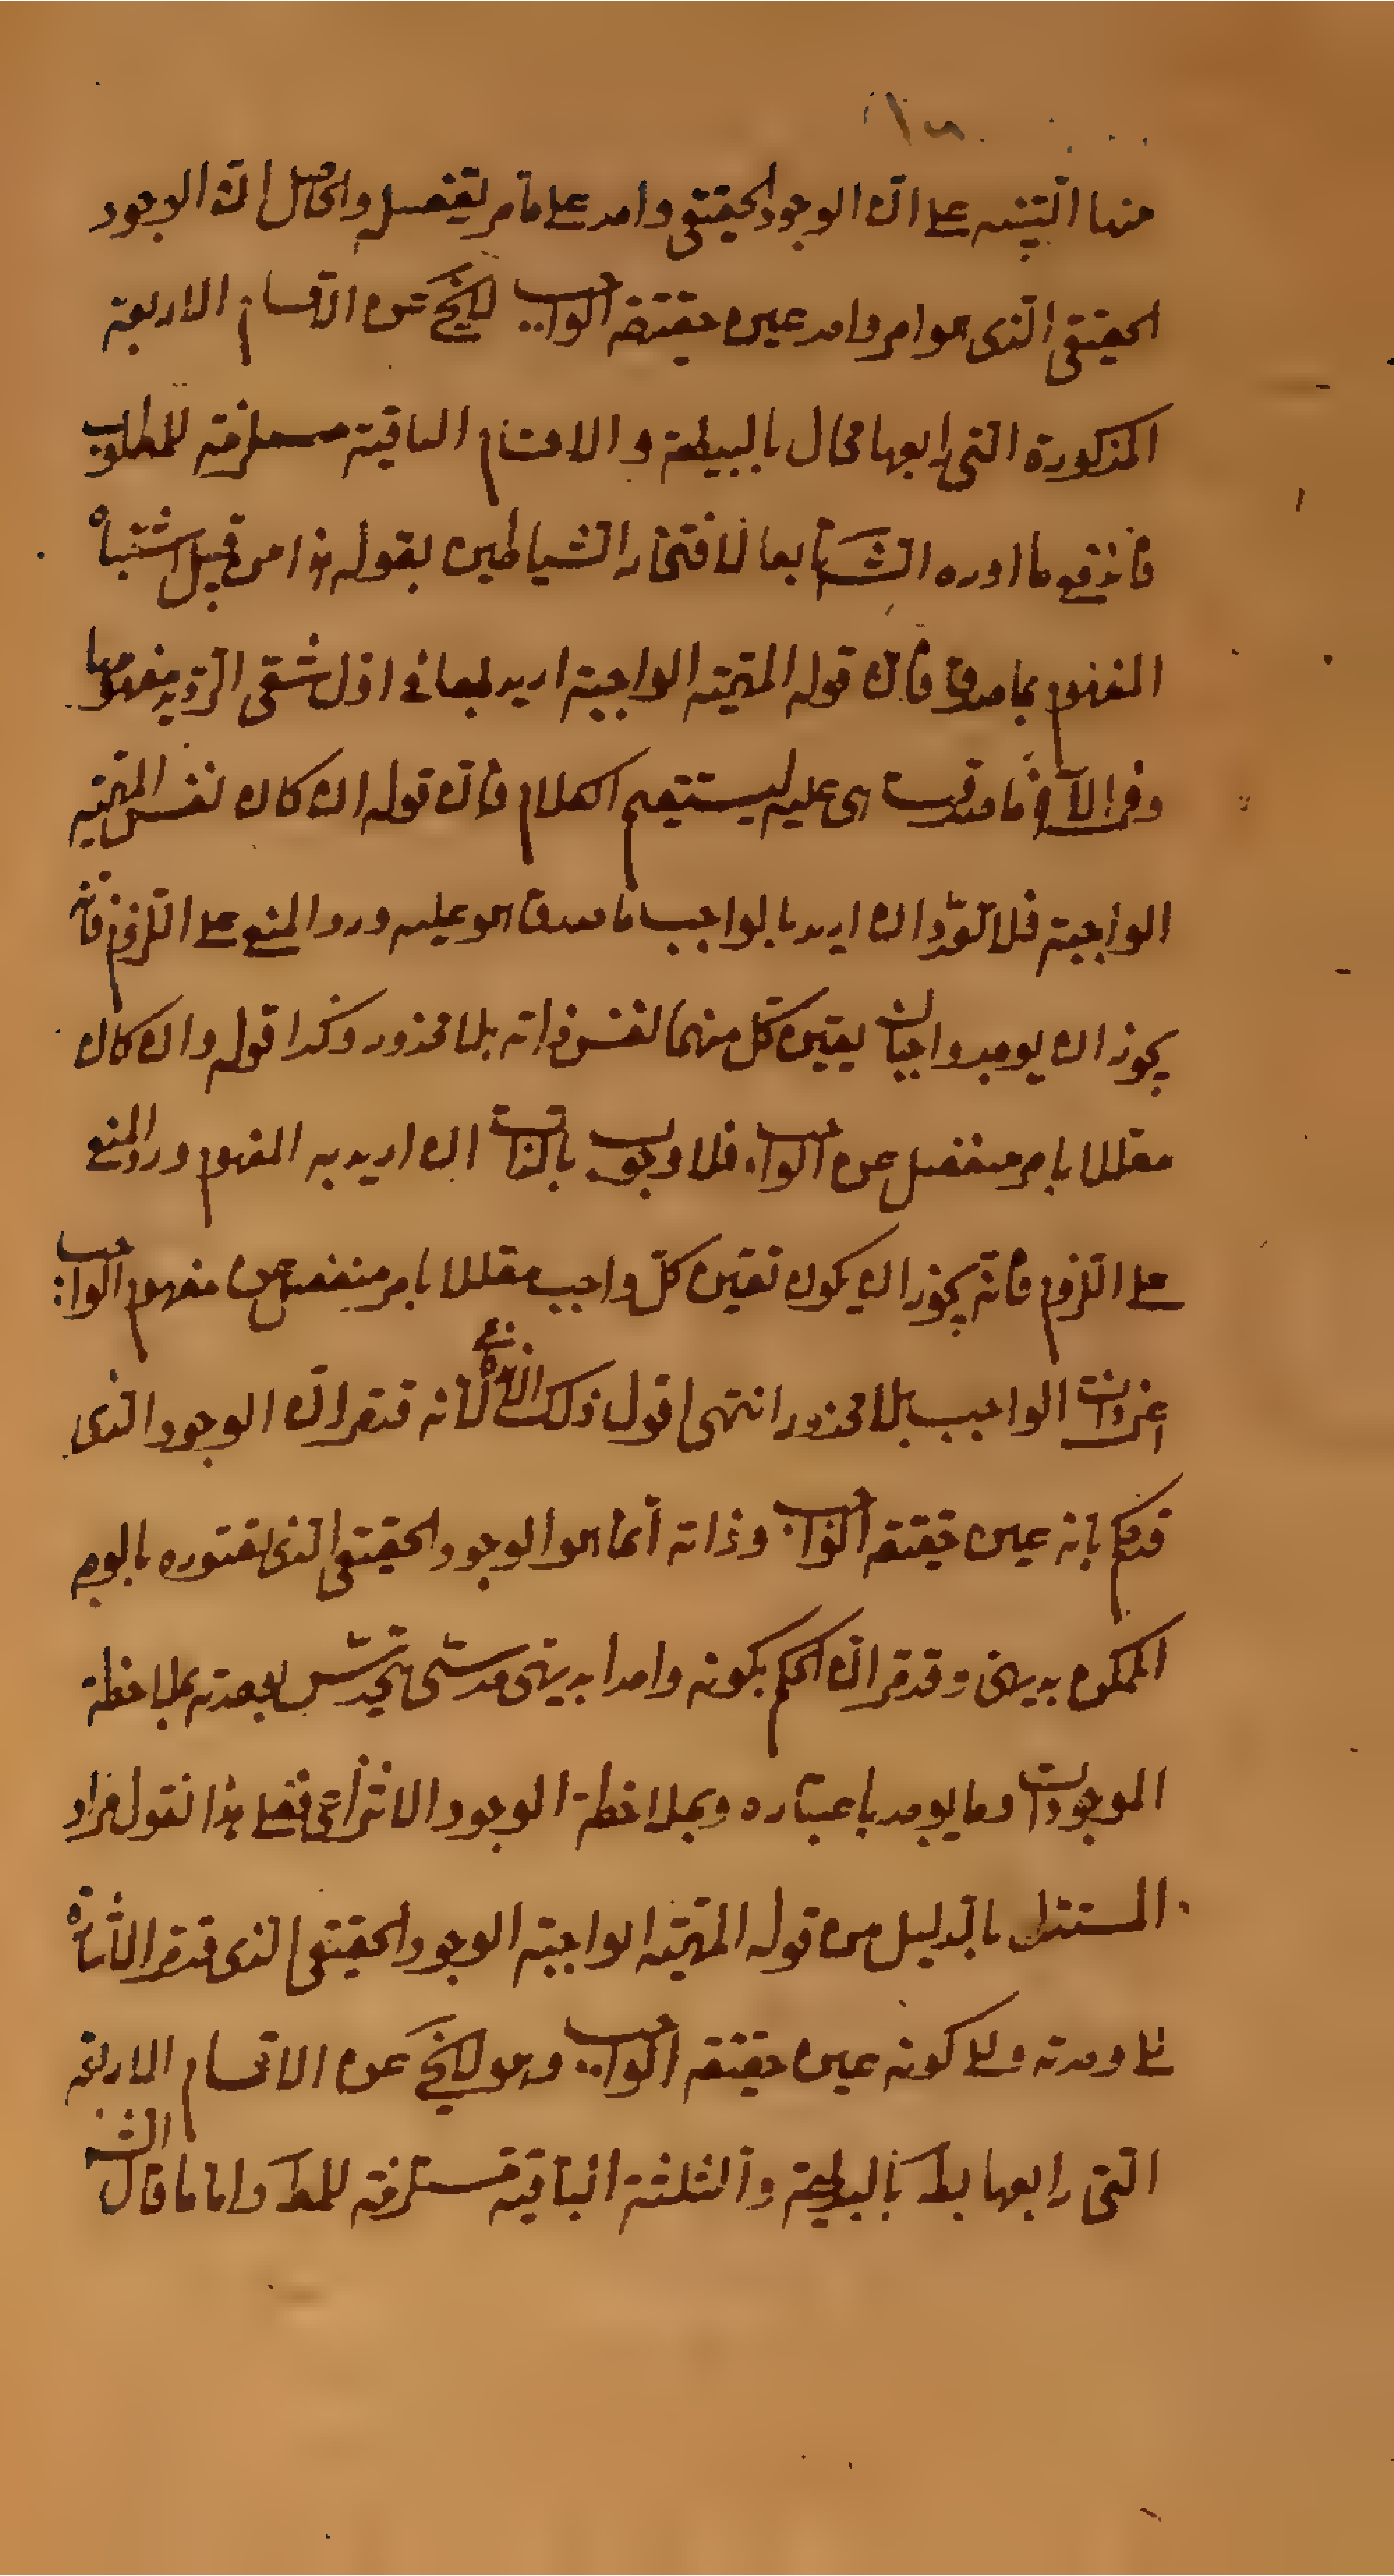 منها التنبيه على ان الوجود الحقيقي واحد على ما مر تفصيله والحاصل ان الوجود
الحقيقي الذي هو امر واحد عين حقيقة الواجب لا يخ عن الاقسام الاربعة
المذكورة التي رابعها محال بالبديهة والاقسام الباقية مستلزمة للمطلوب
فاندفع ما اورده الش تابعا لافتخار الشياطين بقوله هذا من قبيل اشتباه
المفهوم بما صدق فان قوله المهية الواجبة اريد بها في اول شقي الترديد مفهومها
وفي الآخر ما صدقت هي عليه ليستقيم الكلام فان قوله ان كان نفس المهية
الواجبة فلا تعدد ان اريد بالواجب ما صدق هو عليه ورد المنع على اللزوم فانه
يجوز ان يوجد واجبان يتعين كل منهما لنفس ذاته بلا محذور وكذا قوله وان كان
معللا بامر منفصل عن الواجب فلا وجوب بالذات ان اريد به المفهوم ورد المنع
على اللزوم فانه يجوز ان يكون تعين كل واجب معللا بامر منفصل عن مفهوم الواجب
اعني ذات الواجب بلا محذور انتهى اقول ذلك لانه قد مر ان الوجود الذي
قد حكم بانه عين حقيقة الواجب وذاته انما هو الوجود الحقيقي الذي تصوره بالوجه
الممكن بديهي وقد مر ان الحكم بكونه واحدا بديهي حدسي يحدس بوحدته بملاحظة
الموجودات وما يوجد باعتباره وبملاحظة الوجود الانتزاعي فعلى هذا نقول مراد
المستدل بالدليل من قوله المهية الواجبة الوجود الحقيقي الذي قد مر الاشارة
الى وحدته والى كونه عين حقيقة الواجب وهو لا يخ عن الاقسام الاربعة
التي رابعها بط بالبديهة والثلثة الباقية مستلزمة للمط واما ما قال الش